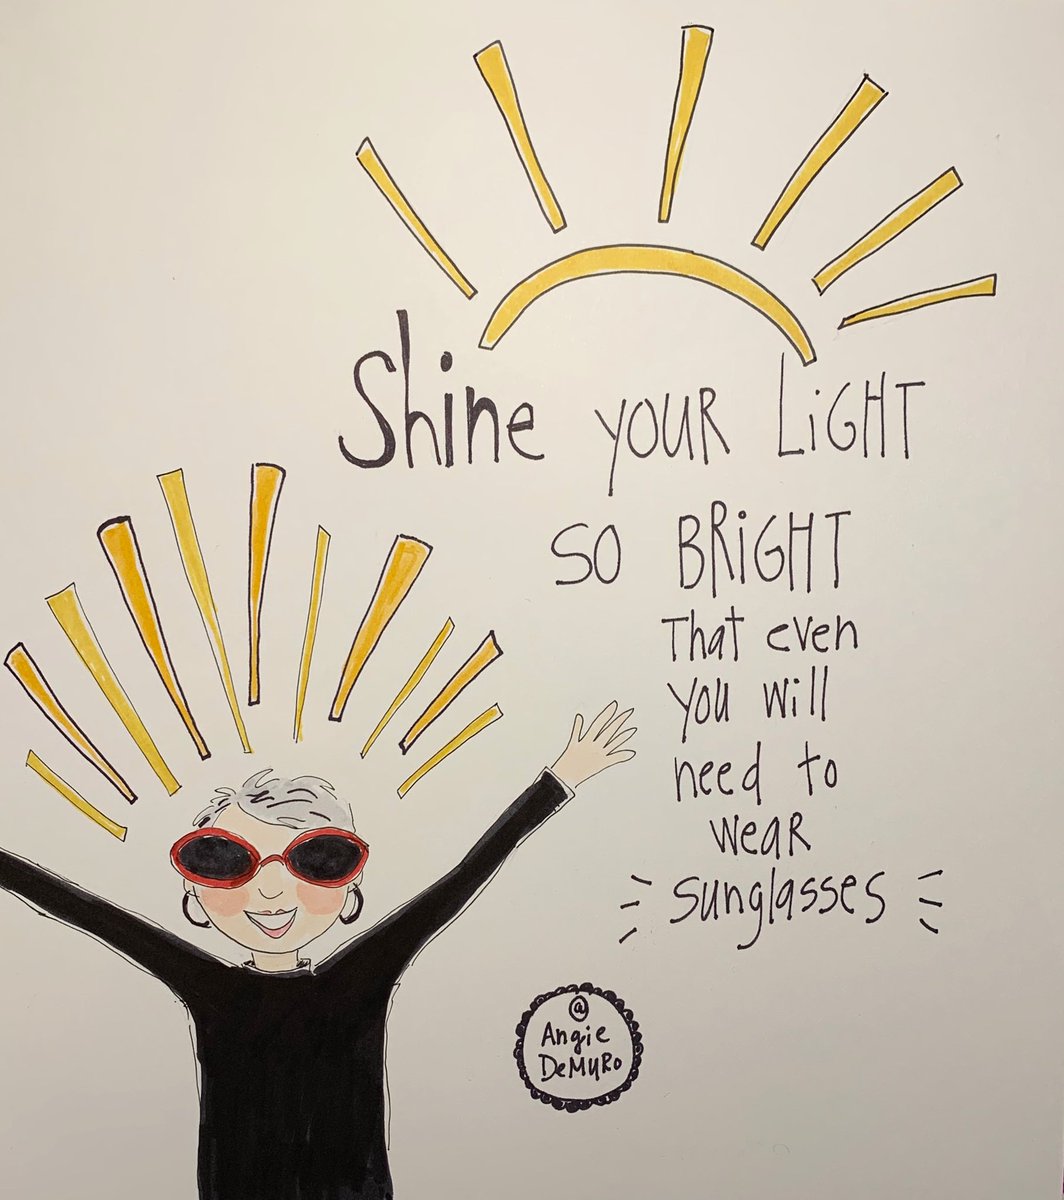 Shine YOUR LiGHT
SO BRiGHT
That even
you will
need to
wear
sunglasses
@
Angie
DeMuro